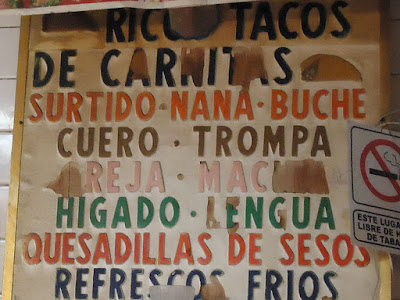 RICO TACOS
DE CARNITAS
SURTIDO · NANA · BUCHE
CUERO · TROMPA
REJA · MAC
HIGADO · LENGUA
QUESADILLAS DE SESOS
REFRESCOS FRIOS
ESTE LUGA
LIBRE DE H
DE TABA